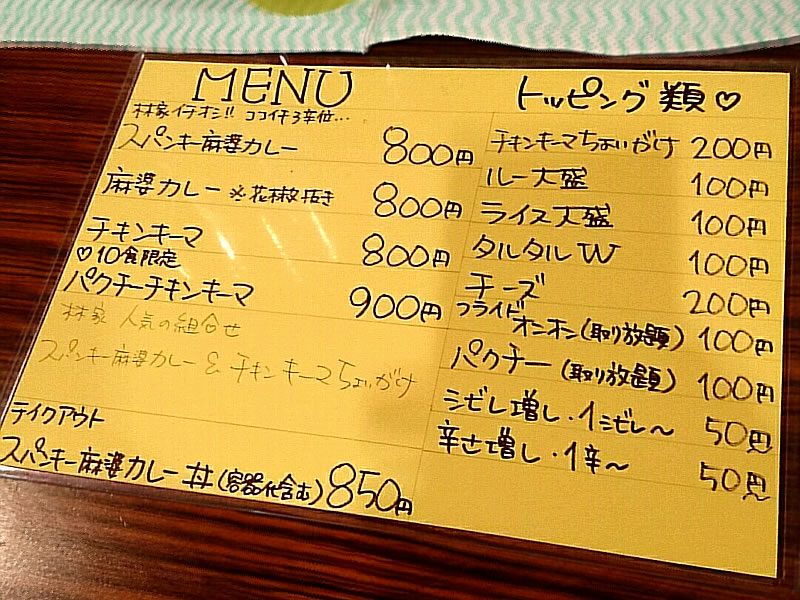 MENU
林家イチオシ!! ココイチ3辛位...
スパンキー麻婆カレー 800円
麻婆カレー ※花椒抜き 800円
チキンキーマ 800円
♡10食限定
パクチーチキンキーマ 900円
林家 人気の組合せ
スパンキー麻婆カレー & チキンキーマちょいがけ
テイクアウト
スパンキー麻婆カレー丼(容器代含む) 850円
トッピング類♡
チキンキーマちょいがけ 200円
ルー大盛 100円
ライス大盛 100円
タルタルW 100円
チーズ 200円
フライド
オニオン(取り放題) 100円
パクチー(取り放題) 100円
シビレ増し・1シビレ〜 50円〜
辛さ増し・1辛〜 50円〜